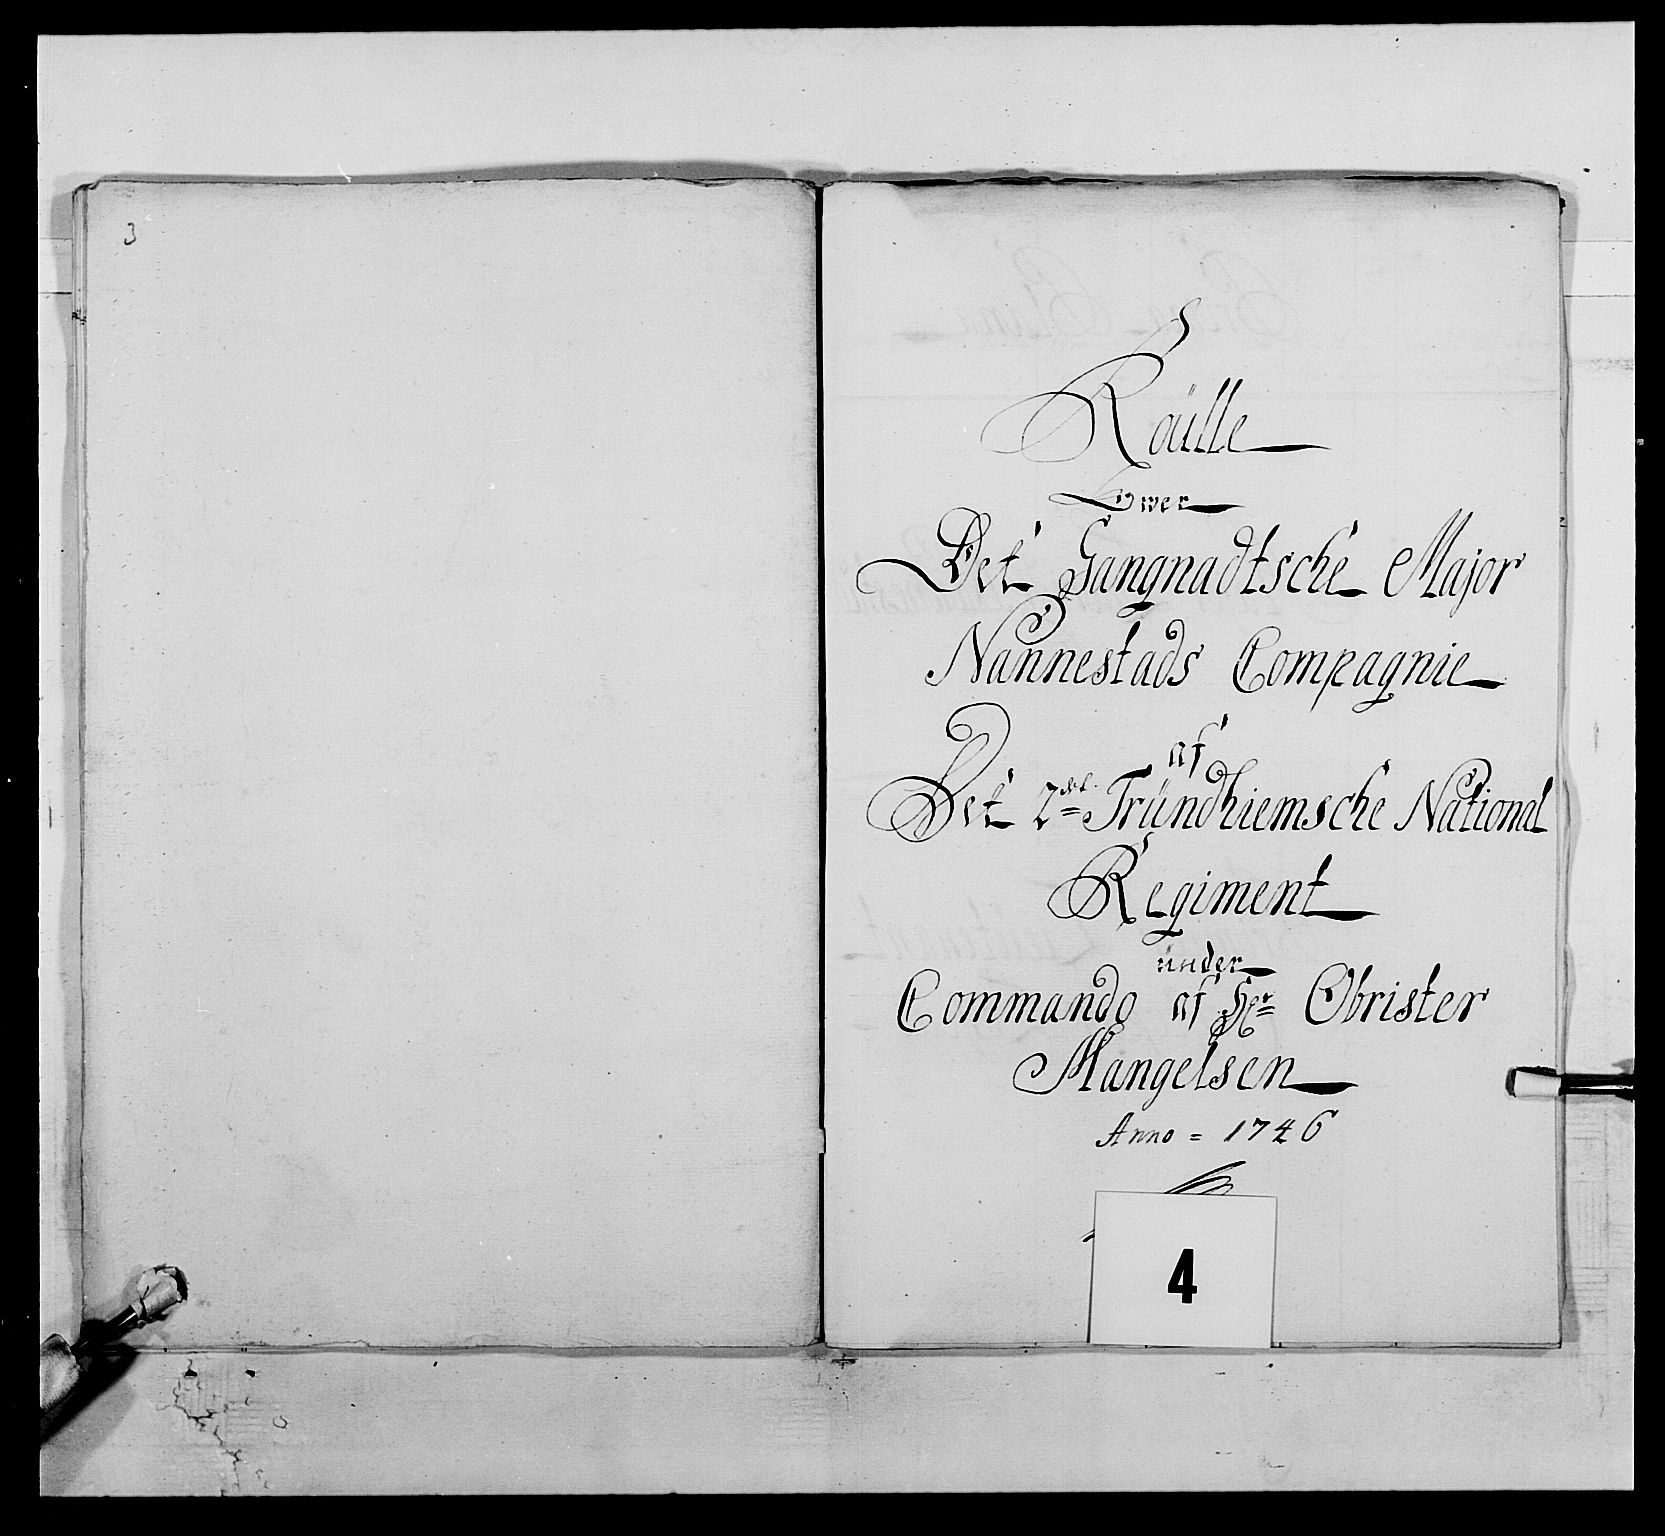 3
Roülle
Ower
Det Gangnadtsche Major
Nannestads Compagnie
af
Det 2det Tründhiemsche National
Regiment
ünder
Commando af Hr Obrister
Mangelsen
Anno = 1746
4